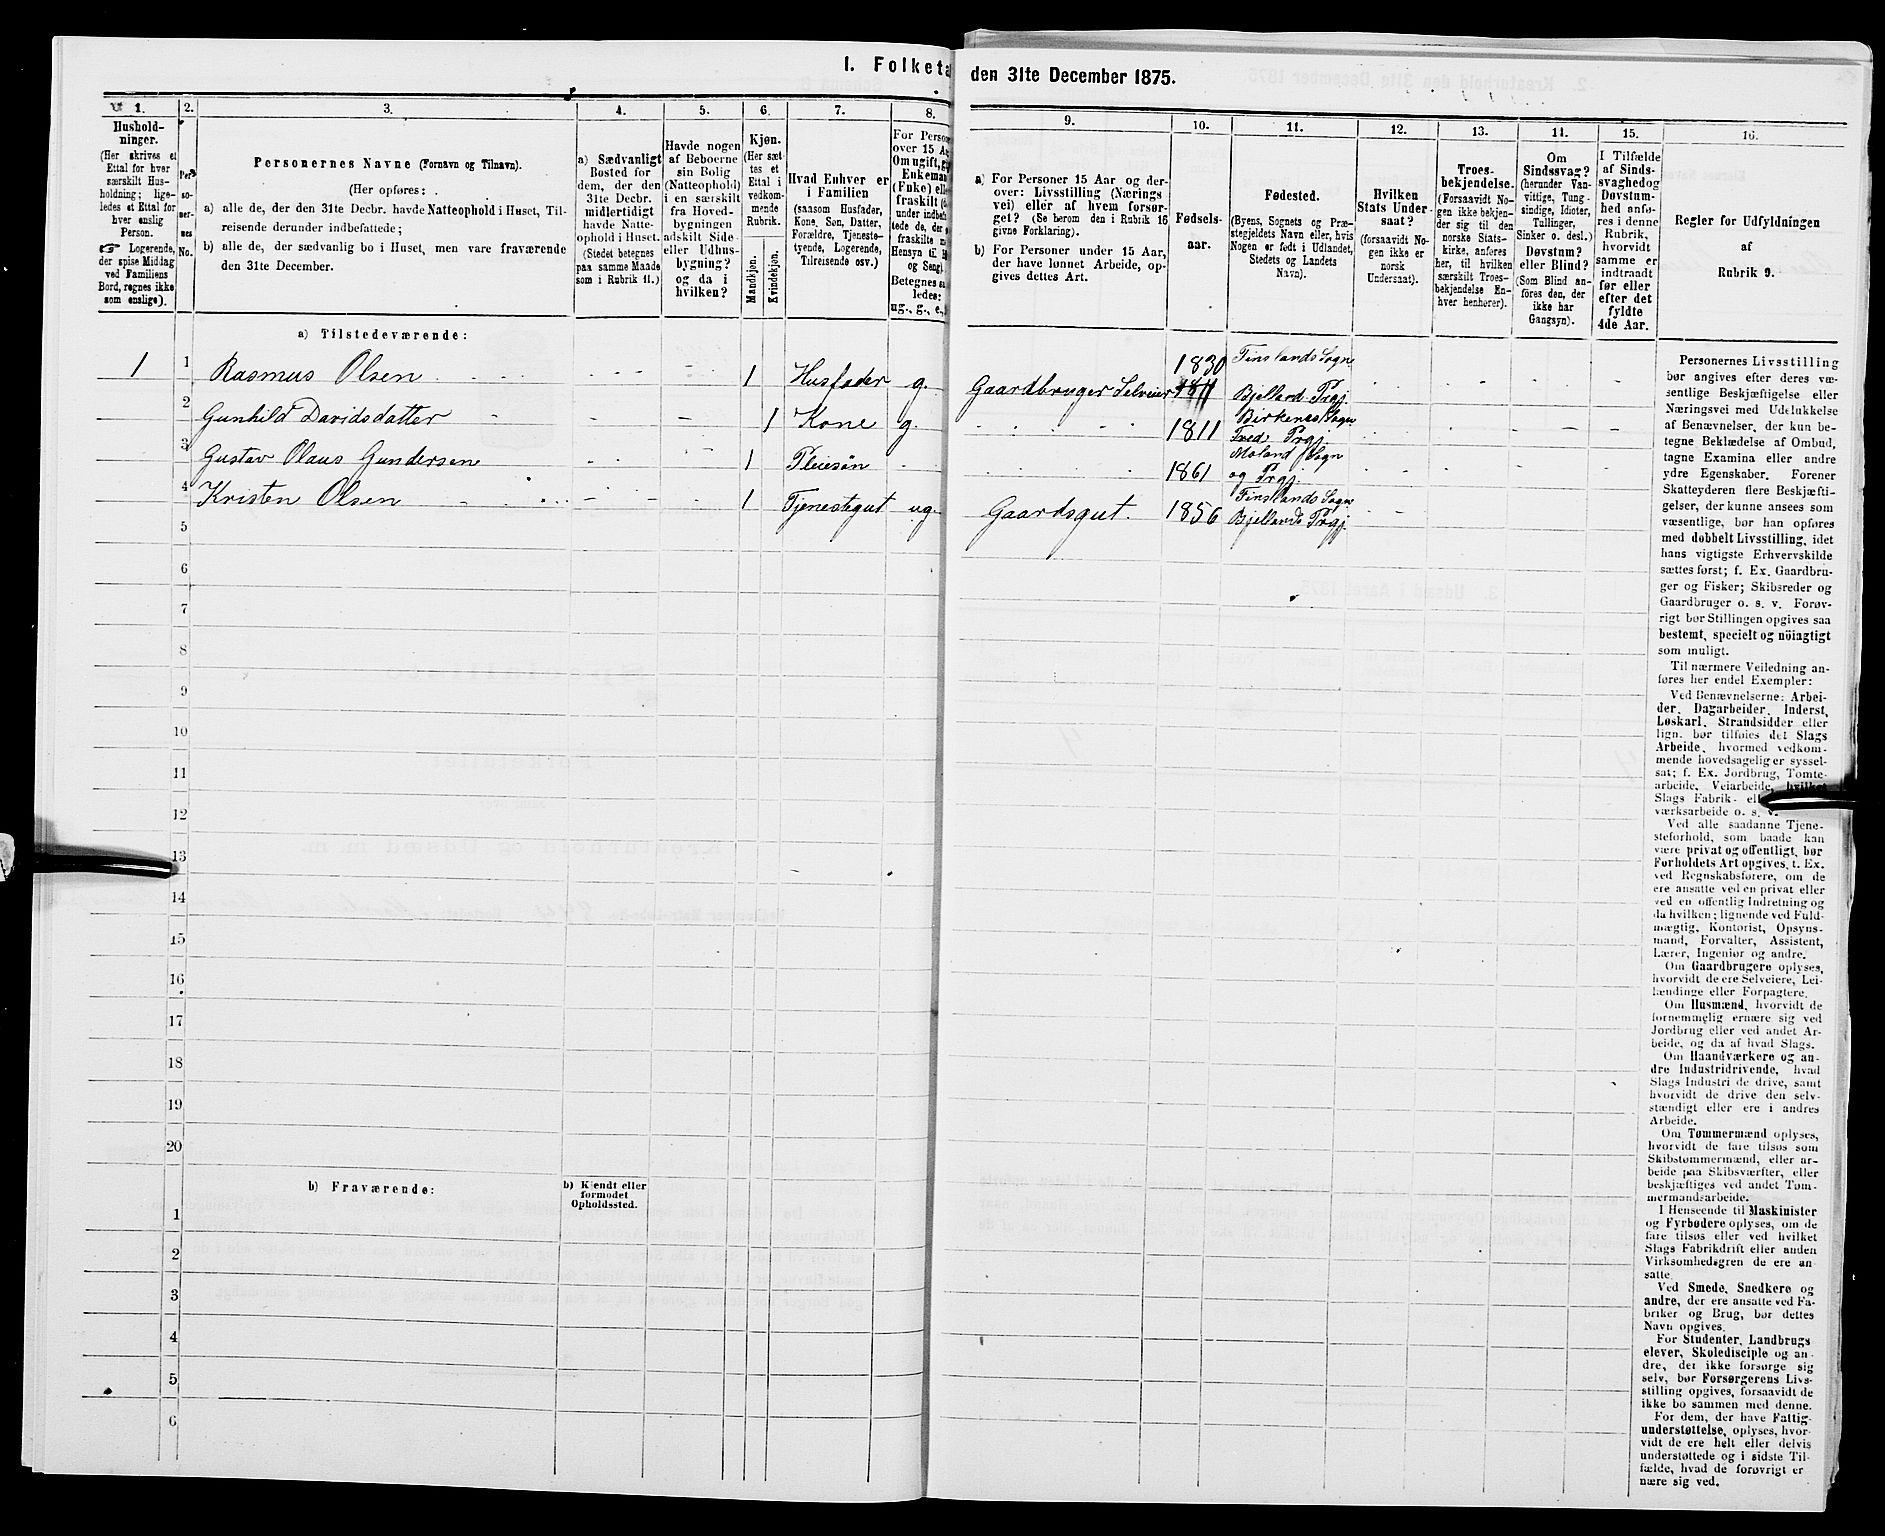 1. Folketa
den 31te December 1875.
1.
2.
3.
4.
5.
6.
7.
8.
9.
10.
11.
12.
13.
14.
15.
16.
Hushold-
ninger.
(Her skrives et
Ettal for hver
særskilt Hus-
holdning; lige-
ledes et Ettal for
hver enslig
Person.
☞ Logerende,
der spise Middag
ved Familiens
Bord, regnes ikke
som enslige).
Per-
so-
ner-
nes
No.
Personernes Navne (Fornavn og Tilnavn).
(Her opføres:
a) alle de, der den 31te Decbr. havde Natteophold i Huset, Til-
reisende derunder indbefattede;
b) alle de, der sædvanlig bo i Huset, men vare fraværende
den 31te December.
a) Sædvanligt
Bosted for
dem, der den
31te Decbr.
midlertidigt
havde Natte-
ophold i Huset.
(Stedet betegnes
paa samme Maade
som i Rubrik 11.)
Havde nogen
af Beboerne
sin Bolig
(Natteophold)
i en særskilt
fra Hoved-
bygningen
adskilt Side-
eller Udhus-
bygning?
og da i
hvilken?
Kjøn.
(Her sæt-
tes et
Ettal i
vedkom-
mende
Rubrik.
Mandkjøn.
Kvindekjøn.
Hvad Enhver er
i Familien
(saasom Husfader,
Kone, Søn, Datter,
Forældre, Tjeneste-
tyende, Logerende,
Tilreisende osv.)
For Person
over 15 A
Om ugift, gi
Enkeman
(Enke) ell
fraskilt
under indbef
tede de, der
fraskilte
Hensyn til
og Seng).
Betegnes sa
ledes:
ug., g., e.,
a) For Personer 15 Aar og der-
over: Livsstilling (Nærings-
vei) eller af hvem forsør-
get? (Se herom den i Rubrik 16
givne Forklaring).
b) For Personer under 15 Aar,
der have lønnet Arbeide, op-
gives dettes Art.
Fødsels-
aar.
Fødested.
(Byens, Sognets og Præ-
stegjeldets Navn eller, hvis
Nogen er født i Udlandet,
Stedets og Landets
Navn).
Hvilken
Stats Under-
saat?
(forsaavidt No-
gen ikke er
norsk
Undersaat).
Troes-
bekjendelse.
(Forsaavidt No-
gen ikke bekjen-
der sig til den
norske Stats-
kirke, anføres
her, til hvilken
særskilt Troes-
bekjendelse En-
hver henhører).
Om
Sindssvag?
(herunder Van-
vittige, Tung-
sindige, Idioter,
Tullinger,
Sinker o. desl.)
Døvstum?
eller Blind?
(Som Blind an-
føres den, der
ikke har
Gangsyn).
I Tilfælde
af Sinds-
svaghed og
Døvstum-
hed anfø-
res i denne
Rubrik,
hvorvidt
samme er
indtraadt
før eller
efter det
fyldte
4de Aar.
Regler for Udfyldningen
af
Rubrik 9.
a) Tilstedeværende:
1 1 Rasmus Olsen 1 Husfader g. Gaardbruger Selveier 1830 Finslands Sogn
Bjelland Prgj.
2 Gunhild Davidsdatter 1 Kone g. 1811 Birkenes Sogn
Prgj.
3 Gustav Olaus Gundersen 1 Pleiesøn 1861 Moland Sogn
og Prgj.
4 Kristen Olsen 1 Tjenestegut ug. Gaardsgut. 1856 Finslands Sogn
Bjellands Prgj.
5
6
7
8
9
10
11
12
13
14
15
16
17
18
19
20
b) Fraværende:
b) Kjendt eller
formodet
Opholdssted.
1
2
3
4
5
6
Personernes Livsstilling
bør angives efter deres væ-
sentlige Beskjæftigelse eller
Næringsvei med Udelukkelse
af Benævnelser, der kun be-
tegne Beklædelse af Ombud,
tagne Examina eller andre
ydre Egenskaber. Forener
Skatteyderen flere Beskjæfti-
gelser, der kunne ansees som
væsentlige, bør han opføres
med dobbelt Livsstilling, idet
hans vigtigste Erhvervskilde
sættes først; f. Ex. Gaardbru-
ger og Fisker; Skibsreder og
Gaardbruger o. s. v. Forøv-
rigt bør Stillingen opgives saa
bestemt, specielt og nøiagtigt
som muligt.
Til nærmere Veiledning an-
føres her endel Exempler:
Ved Benævnelserne: Arbei-
der, Dagarbeider, Inderst,
Løskarl, Strandsidder eller
lign. bør tilføies det Slags
Arbeide, hvormed vedkom-
mende hovedsagelig er syssel-
sat; f. Ex. Jordbrug, Tomte-
arbeide, Veiarbeide, hvilket
Slags Fabrik- ell
værksarbeide o. s. v.
Ved alle saadanne Tjene-
steforhold, som baade kan
være privat og offentligt, bør
Forholdets Art opgives, t. Ex.
ved Regnskabsførere, om de
ere ansatte ved en privat eller
ved en offentlig Indretning og
da hvilken; lignende ved Fuld-
mægtig, Kontorist, Opsyns-
mand, Forvalter, Assistent,
Lærer, Ingeniør og andre.
Om Gaardbrugere oplyses,
hvorvidt de ere Selveiere, Lei-
lændinge eller Forpagtere.
Om Husmænd, hvorvidt de
fornemmelig ernære sig ved
Jordbrug eller ved andet Ar-
beide, og da af hvad Slags.
Om Haandværkere og an-
dre Industridrivende, hvad
Slags Industri de drive, samt
hvorvidt de drive den selv-
stændigt eller ere i andres
Arbeide.
Om Tømmermænd oplyses,
hvorvidt de fare tilsøs som
Skibstømmermænd, eller ar-
beide paa Skibsværfter, eller
beskjæftiges ved andet Tøm-
mermandsarbeide.
I Henseende til Maskinister
og Fyrbødere oplyses, om de
fare tilsøs eller ved hvilket
Slags Fabrikdrift eller anden
Virksomhedsgren de ere an-
satte.
Ved Smede, Snedkere og
andre, der ere ansatte ved Fa-
briker og Brug, bør dettes
Navn opgives.
For Studenter, Landbrugs-
elever, Skoledisciple og an-
dre, der ikke forsørge sig
selv, bør Forsørgerens Livs-
stilling opgives, forsaavidt de
ikke bo sammen med denne.
For dem, der have Fattig-
understøttelse, oplyses, hvor-
vidt de ere helt eller delvis
understøttede og i sidste Til-
fælde, hvad de forøvrigt er-
nære sig ved.